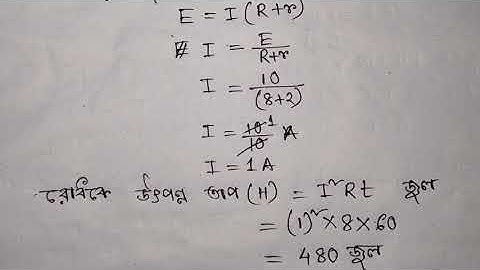 E = I (R+r)
I = E/R+r
I = 10/(8+2)
I = 10 1/10 A
I = 1 A
রোধকে উৎপন্ন তাপ (H) = I²Rt জুল
= (1)² × 8 × 60
= 480 জুল